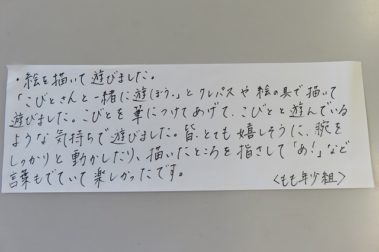 ・絵を描いて遊びました。
「こびとさんと一緒に遊ぼう。」とクレパスや絵の具で描いて
遊びました。こびとを筆につけてあげて、こびとと遊んでいる
ような気持ちで遊びました。皆、とても嬉しそうに、腕を
しっかりと動かしたり、描いたところを指さして「あ!」など
言葉もでていて楽しかったです。
〈もも年少組〉